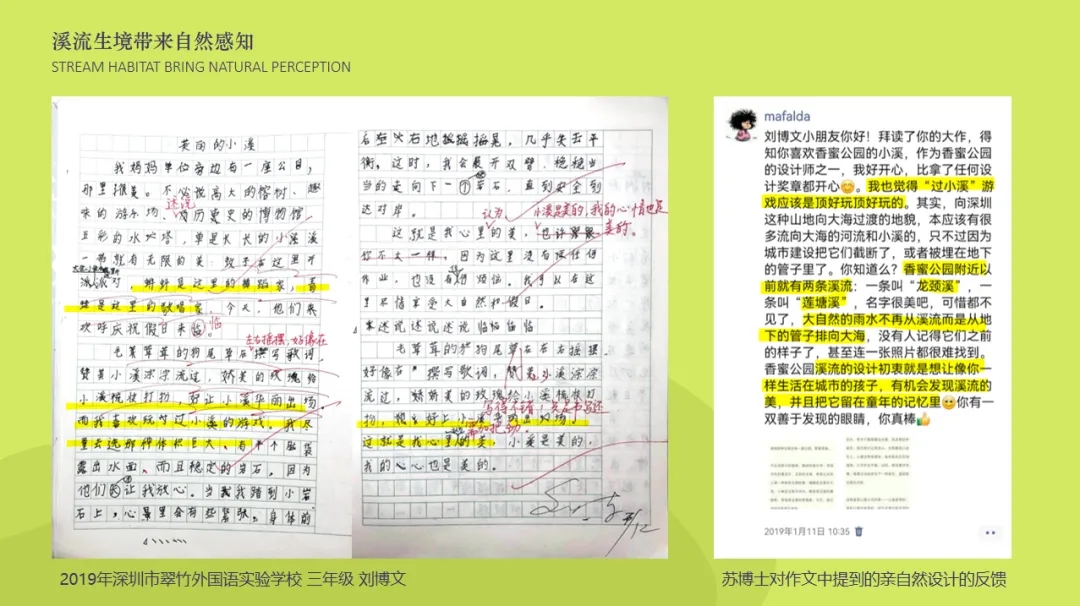 溪流生境带来自然感知
STREAM HABITAT BRING NATURAL PERCEPTION
美丽的小溪
我妈妈单位旁边有一座公园，
那里很美。不必说高大的榕树、趣
味的游乐场、历史的博物馆、
五彩的水
一带就有无限的美
这里开
派对，
是这里的舞蹈家，
是这里的歌唱家，今天，他们来
欢呼庆祝假日来临
左右摇摆，好像在
毛茸茸的狗尾草在撰写歌词，
赞美小溪淙淙流过，娇美的玫瑰给
小溪梳妆打扮，让小溪华丽出场。
而我喜欢玩过小溪的游戏。我尽
量去选那种体积巨大、有半个脑袋
露出水面、而且稳定的岩石。因为
他们会让我放心。当我踏到小岩
石上，心里会有些紧张。身体的
后左右地摇摇晃晃，几乎失去平
衡。这时，我会展开双臂，稳稳当
当的走向下一个岩石，直到安全到
达对岸。
认为
小溪是美的，我的心情也是
美的。
这就是我心里的美，也许
你不大一样。因为这里没有
作业，也没有烦恼。我可以在这
里尽情享受大自然和假日。
毛茸茸的狗尾草左右摇摆
好像在撰写歌词，赞美小溪淙淙
流过，娇美的玫瑰给小溪梳妆打
扮，
出场。
这就是我心里的美，小溪是美的，
我的心也是美的。
2019年深圳市翠竹外国语实验学校 三年级 刘博文
mafalda
刘博文小朋友你好！拜读了你的大作，得
知你喜欢香蜜公园的小溪，作为香蜜公园
的设计师之一，我好开心，比拿了任何设
计奖章都开心😊。我也觉得“过小溪”游
戏应该是顶好玩顶好玩的。其实，向深圳
这种山地向大海过渡的地貌，本应该有很
多流向大海的河流和小溪的，只不过因为
城市建设把它们截断了，或者被埋在地下
的管子里了。你知道么？香蜜公园附近以
前就有两条溪流：一条叫“龙颈溪”，一
条叫“莲塘溪”，名字很美吧，可惜都不
见了，大自然的雨水不再从溪流而是从地
下的管子排向大海，没有人记得它们之前
的样子了，甚至连一张照片都很难找到。
香蜜公园溪流的设计初衷就是想让像你一
样生活在城市的孩子，有机会发现溪流的
美，并且把它留在童年的记忆里😊你有一
双善于发现的眼睛，你真棒👍
2019年1月11日 10:35
苏博士对作文中提到的亲自然设计的反馈